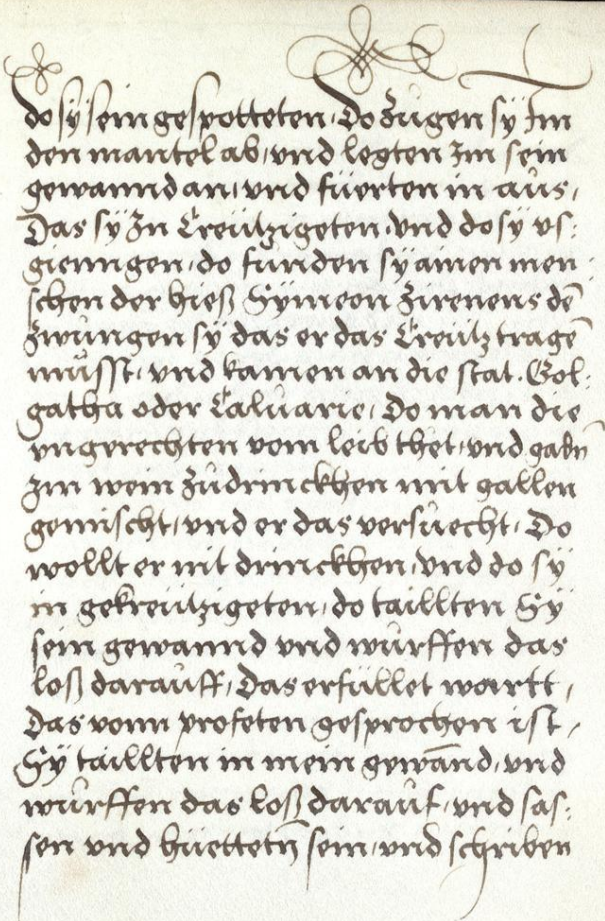 do sÿ sein gespotteten, Do zůgen sÿ Im
den mantel ab, vnd legten Im sein
gewannd an, vnd füerten in aůs,
Das sÿ In Creützigeten, vnd do sÿ vs:
gienngen, do funden sÿ ainen men:
schen der hieß Sÿmeon zirenens dē
zwůngen sÿ das er das Creütz tragē
můsst, vnd kamen an die stat. Gol:
gatha oder Calůarie, Do man die
vngerechten vom leib thet, vnd gabn̄
Im wein zůdrinckhen mit gallen
gemischt, vnd er das versůecht, Do
wollt er nit drinckhen, vnd do sÿ
in gekreützigeten, do taillten Sÿ
sein gewannd vnd wůrffen das
loß daraůff, Das erfüllet wartt,
Das vonn profeten gesprochen ist,
Sÿ taillten in mein gewānd, vnd
wůrffen das loß daraůf, vnd sas:
sen vnd hüettetn̄ sein, vnd schriben